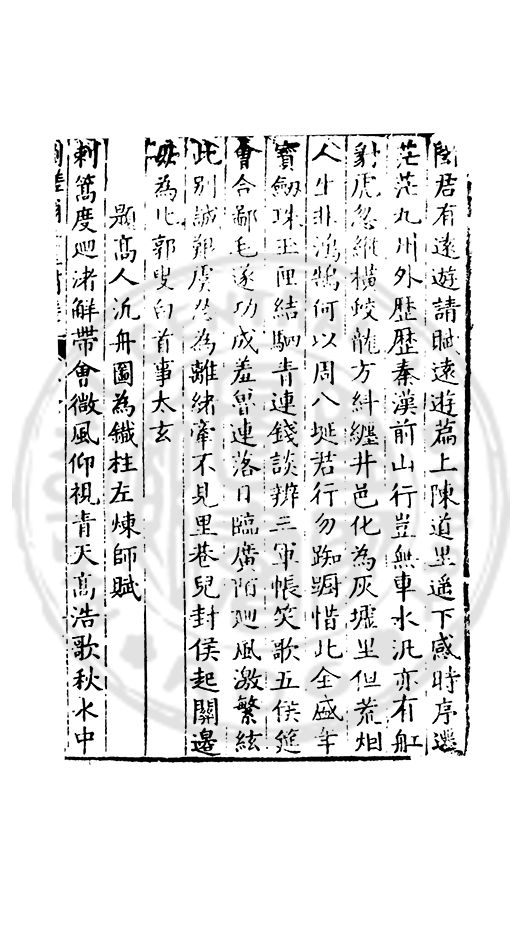 君有遠遊請賦遠遊篇上陳道里遥下感時序遷
茫茫九州外歴歴秦漢前山行豈無車水汎亦有舡
豺虎忽縱橫蛟龍方糾纏井邑化為灰墟里但荒烟
人生非鴻鵠何以周八埏若行勿踟蹰惜此全盛年
寶劔珠玉匣結駟青連錢談辨三軍帳笑歌五侯筵
會合鄙毛遂功成羞魯連落日臨廣陌廻風激繁絃
此别誠難虞為離緒牽不見里巷兒封侯起關邊
毋為北郭叟白首事太玄
題高人汎舟圖為鐡柱左煉師賦
刺篙度廻渚解帶會微風仰視青天高浩歌秋水中